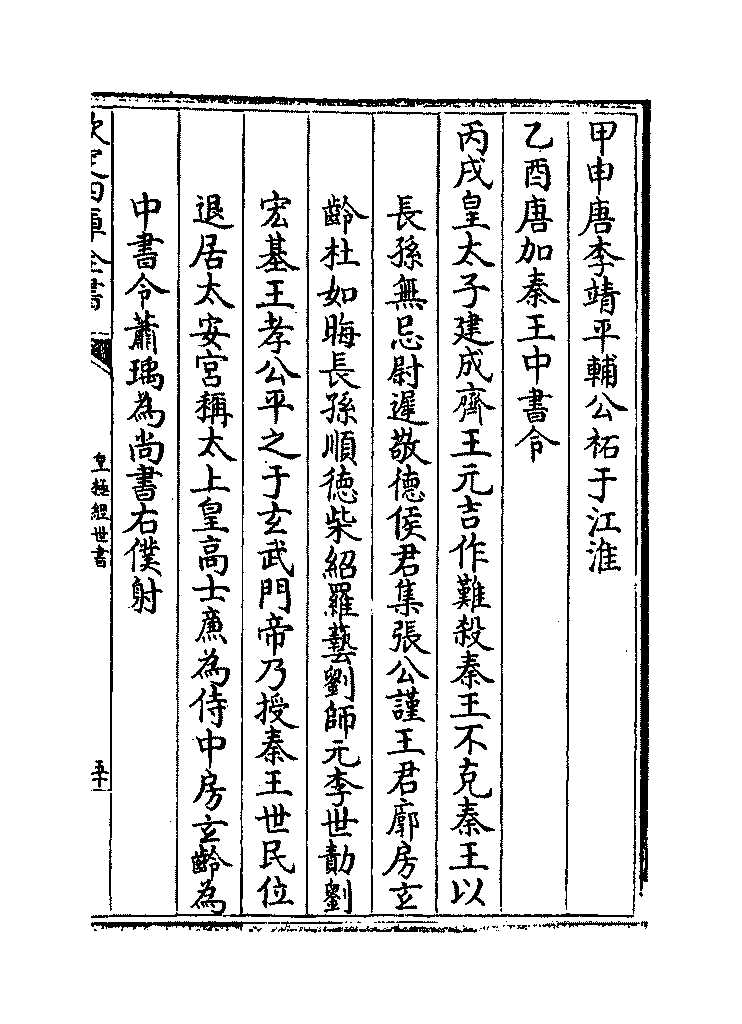 甲申唐李靖平輔公祏于江淮
乙酉唐加秦王中書令
丙戌皇太子建成齊王元吉作難殺秦王不克秦王以
長孫無忌尉遲敬德侯君集張公謹王君廓房玄
齡杜如晦長孫順徳柴紹羅藝劉師元李世勣劉
宏基王孝公平之于玄武門帝乃授秦王世民位
退居太安宮稱太上皇高士廉為侍中房玄齡為
中書令蕭瑀為尚書右僕射
欽定四庫全書
皇極經世書
五十